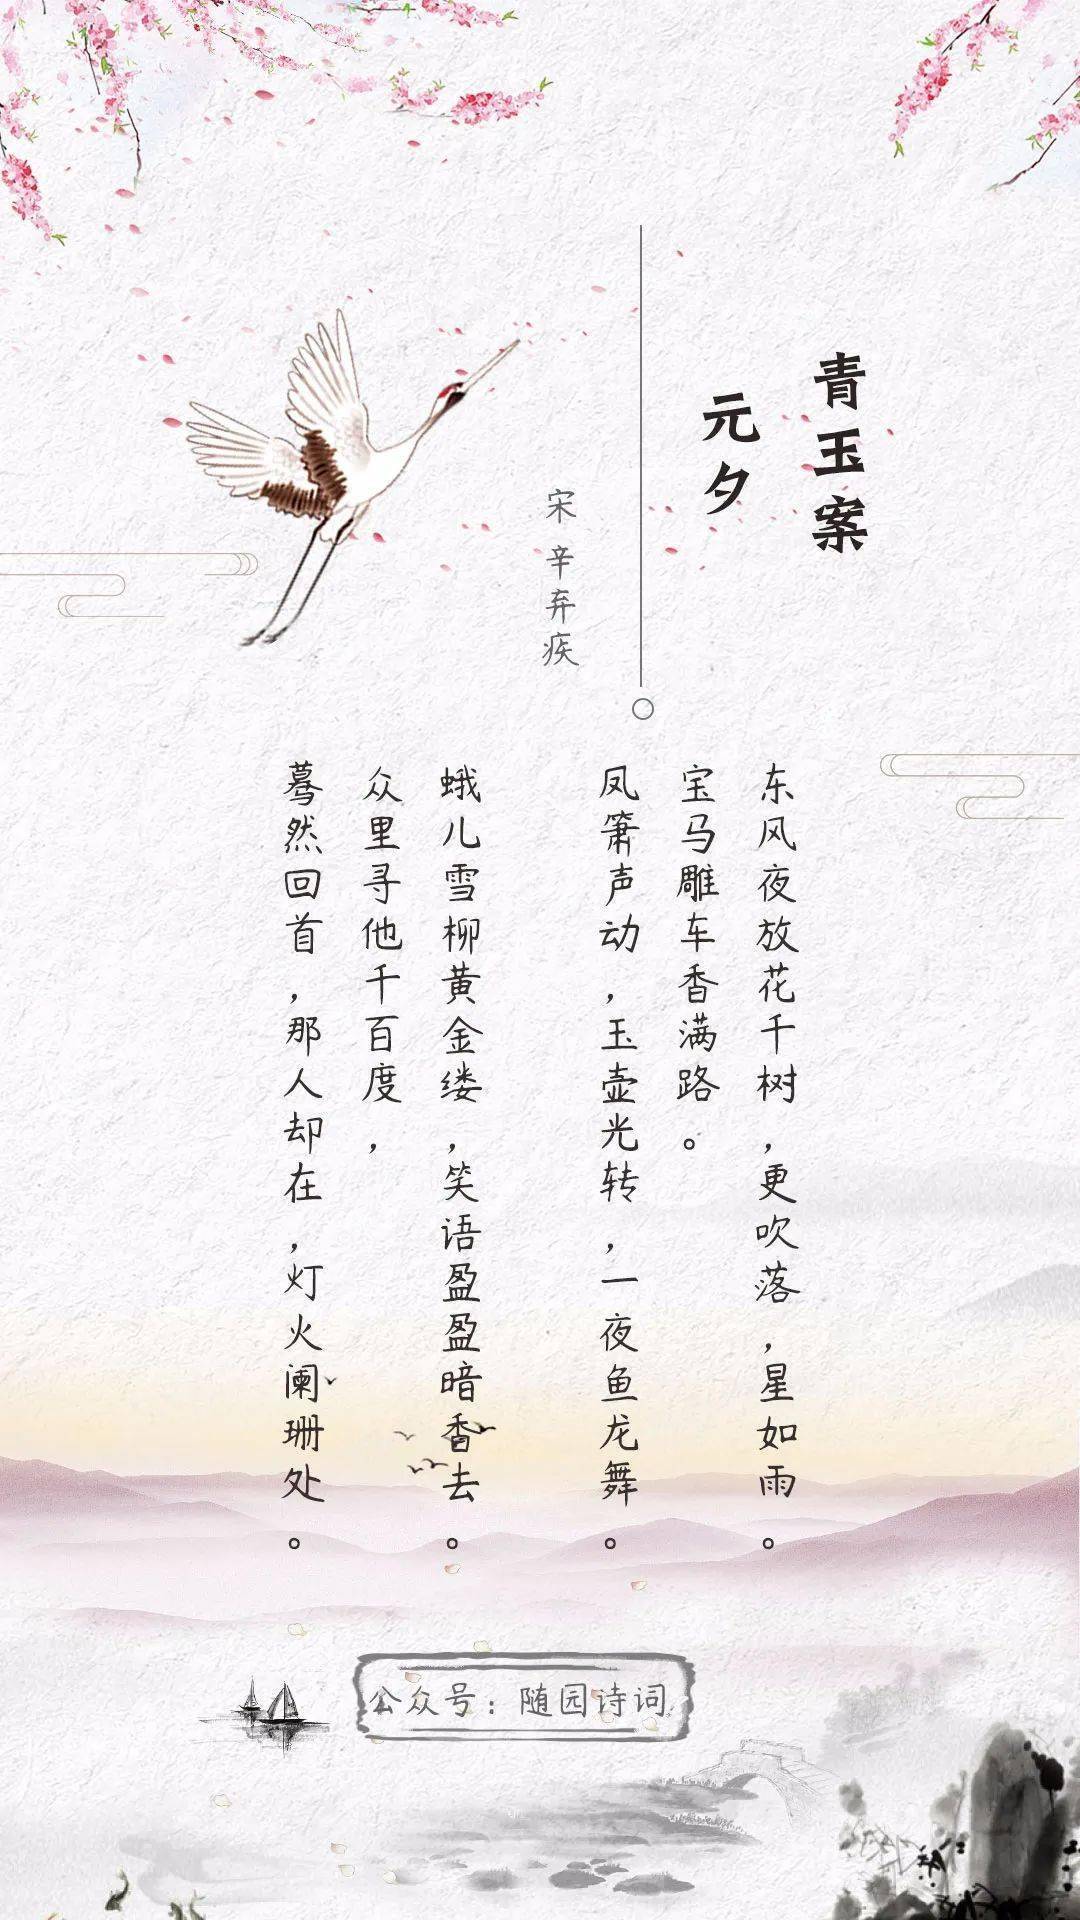 青玉案
元夕
宋 辛弃疾
东风夜放花千树，更吹落，星如雨。
宝马雕车香满路。
凤箫声动，玉壶光转，一夜鱼龙舞。
蛾儿雪柳黄金缕，笑语盈盈暗香去。
众里寻他千百度，
蓦然回首，那人却在，灯火阑珊处。
公众号：随园诗词